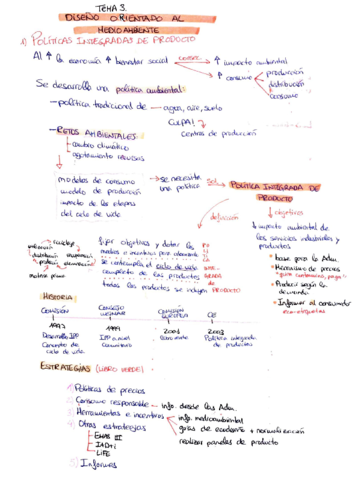 TEMA 3.
DISEÑO ORIENTADO AL
MEDIO AMBIENTE
1) POLÍTICAS INTEGRADAS DE PRODUCTO
Al ↑ la economía ↑ bienestar social → ↑ impacto ambiental
↑ consumo
producción
distribución
consumo
Se desarrolla una política ambiental
- política tradicional de — agua, aire, suelo
CULPA!
centros de producción
- RETOS AMBIENTALES
cambio climático
agotamiento recursos
modelos de consumo
modelo de producción
impacto de las etapas
del ciclo de vida
→ se necesita
una política
Sol
POLÍTICA INTEGRADA DE
PRODUCTO
definición
↓ objetivos
↓ impacto ambiental de
los servicios industriales y
productos
• base para la Adm.
• Mecanismo de precios
"quien contamina, paga"
• Producir según la
demanda
• Informar al consumidor
eco-etiquetas
reciclaje
distribución
producción
materia prima
fijar objetivos y dotar los
medios e incentivos para alcanzarlos
Se contempla el ciclo de vida
completo de los productos
todos los productos se incluyen
PRODUCTO
HISTORIA
COMISIÓN
CONSEJO
COMISIÓN
EUROPEA
CE
1997
1999
2001
2003
Desarrollo IPP
Concepto de
ciclo de vida
Política integrada
de productos
ESTRATEGIAS (LIBRO VERDE)
1) Políticas de precios
2) Consumo responsable — info. desde las Adm.
3) Herramientas e incentivos
info. medioambiental
guías de ecodiseño + normalización
realizar paneles de producto
4) Otras estrategias
EMAS III
I+D+i
LIFE
5) Informes